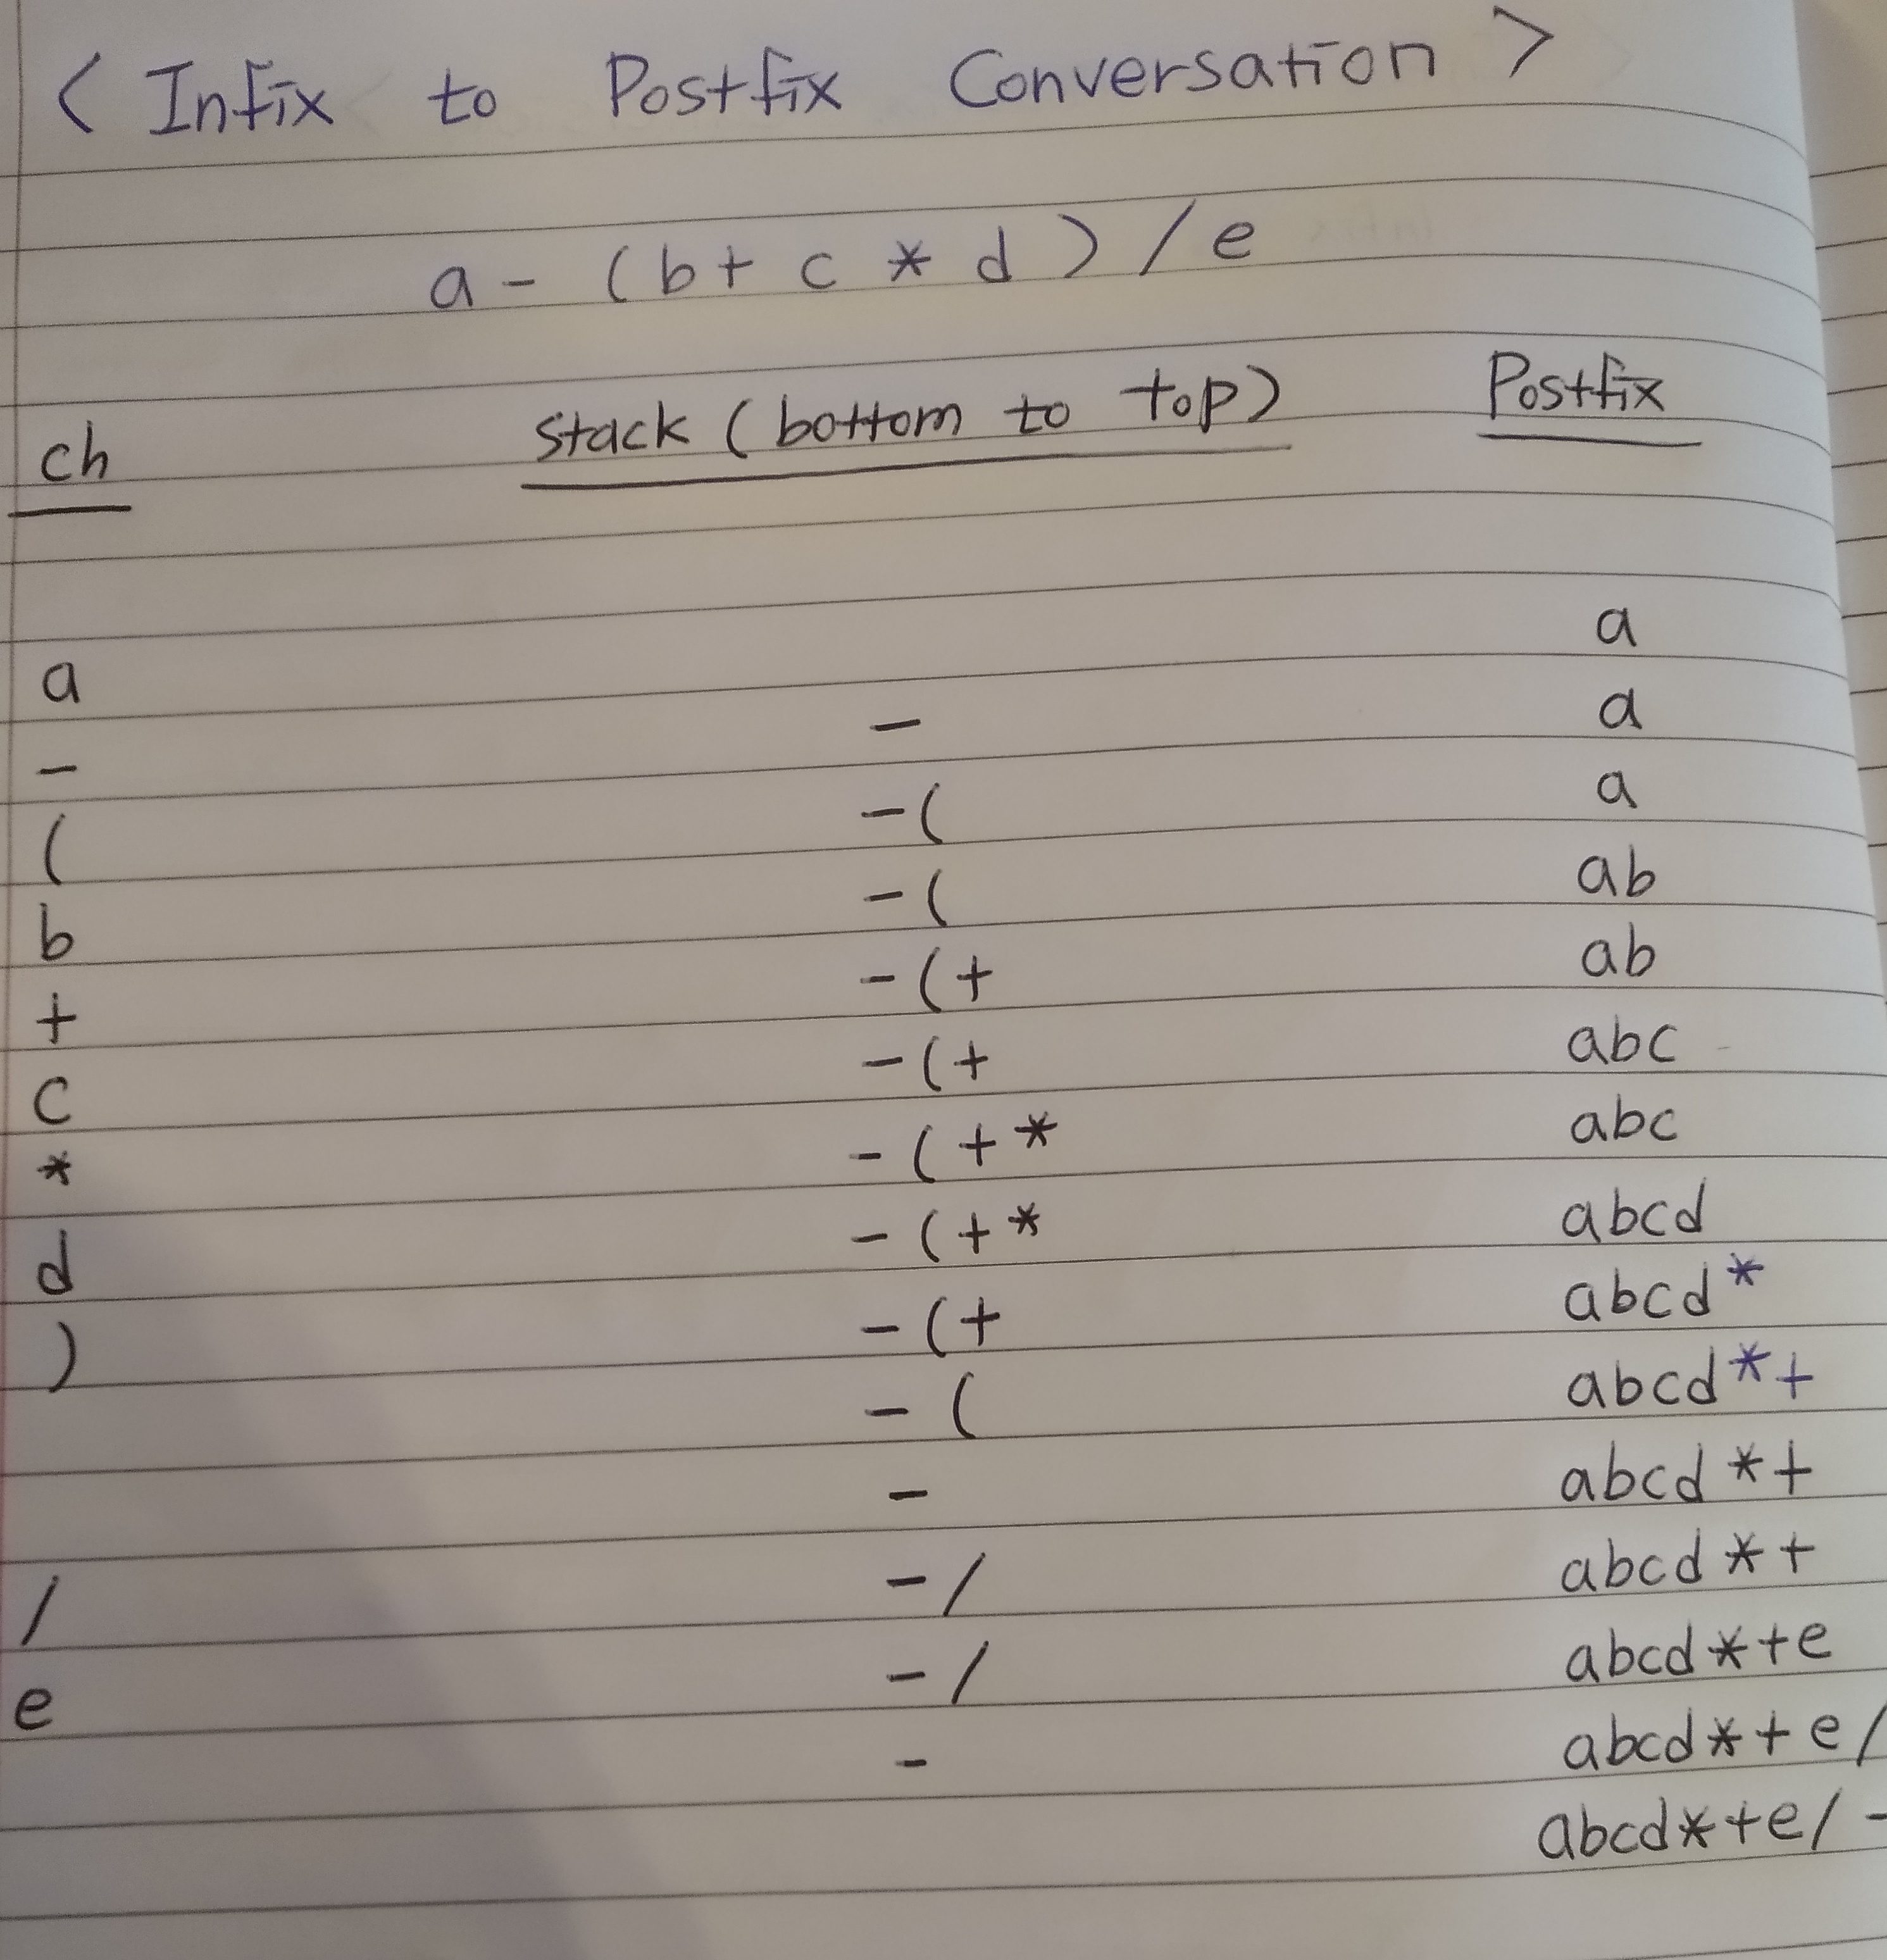 < Infix to Postfix Conversation >
a - ( b + c * d ) / e
ch stack ( bottom to top) Postfix
a a
- - a
( -( a
b -( ab
+ -(+ ab
c -(+ abc
* -(+* abc
d -(+* abcd
) -(+ abcd*
-( abcd*+
- abcd*+
/ -/ abcd*+
e -/ abcd*+e
- abcd*+e/
abcd*+e/-